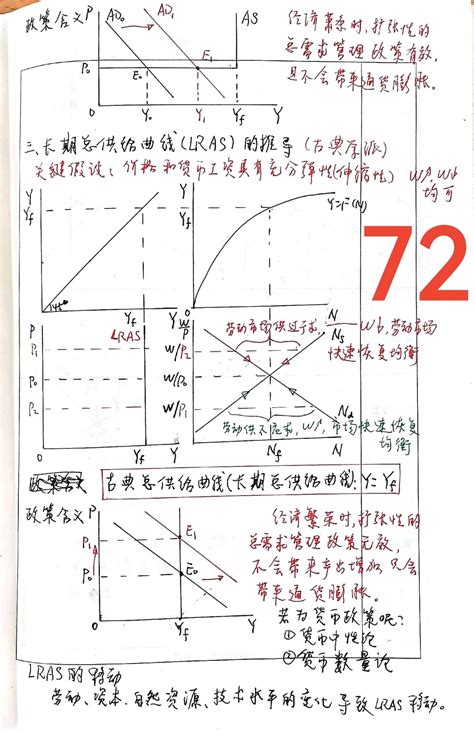 政策含义 P AD₀ AD₁ AS
P₀ E₀ E₁
0 Y₀ Y₁ Yf Y
经济萧条时,扩张性的
总需求管理政策有效,
且不会带来通货膨胀。
三、长期总供给曲线(LRAS)的推导(古典学派)
关键假设:价格和货币工资具有充分弹性(伸缩性) W↑,W↓
均可
Y
Yf
45°
Yf Y
Y
Y=F(N)
0 N
72
P LRAS
P₁
P₀
P₂
0 Yf Y
W/P 劳动市场供过于求, W↓,劳动市场
快速恢复均衡
Ns
W/P₂
W/P₀
W/P₁
Nd
劳动供不应求,W↑,市场快速恢复
均衡
0 Nf N
古典总供给曲线(长期总供给曲线): Y=Yf
政策含义 P
E₁
P₁
P₀ E₀
0 Yf Y
经济繁荣时,扩张性的
总需求管理政策无效,
不会带来产出增加,只会
带来通货膨胀。
若为货币政策呢?
①货币中性论
②货币数量论
LRAS的移动
劳动、资本、自然资源、技术水平的变化导致LRAS移动。